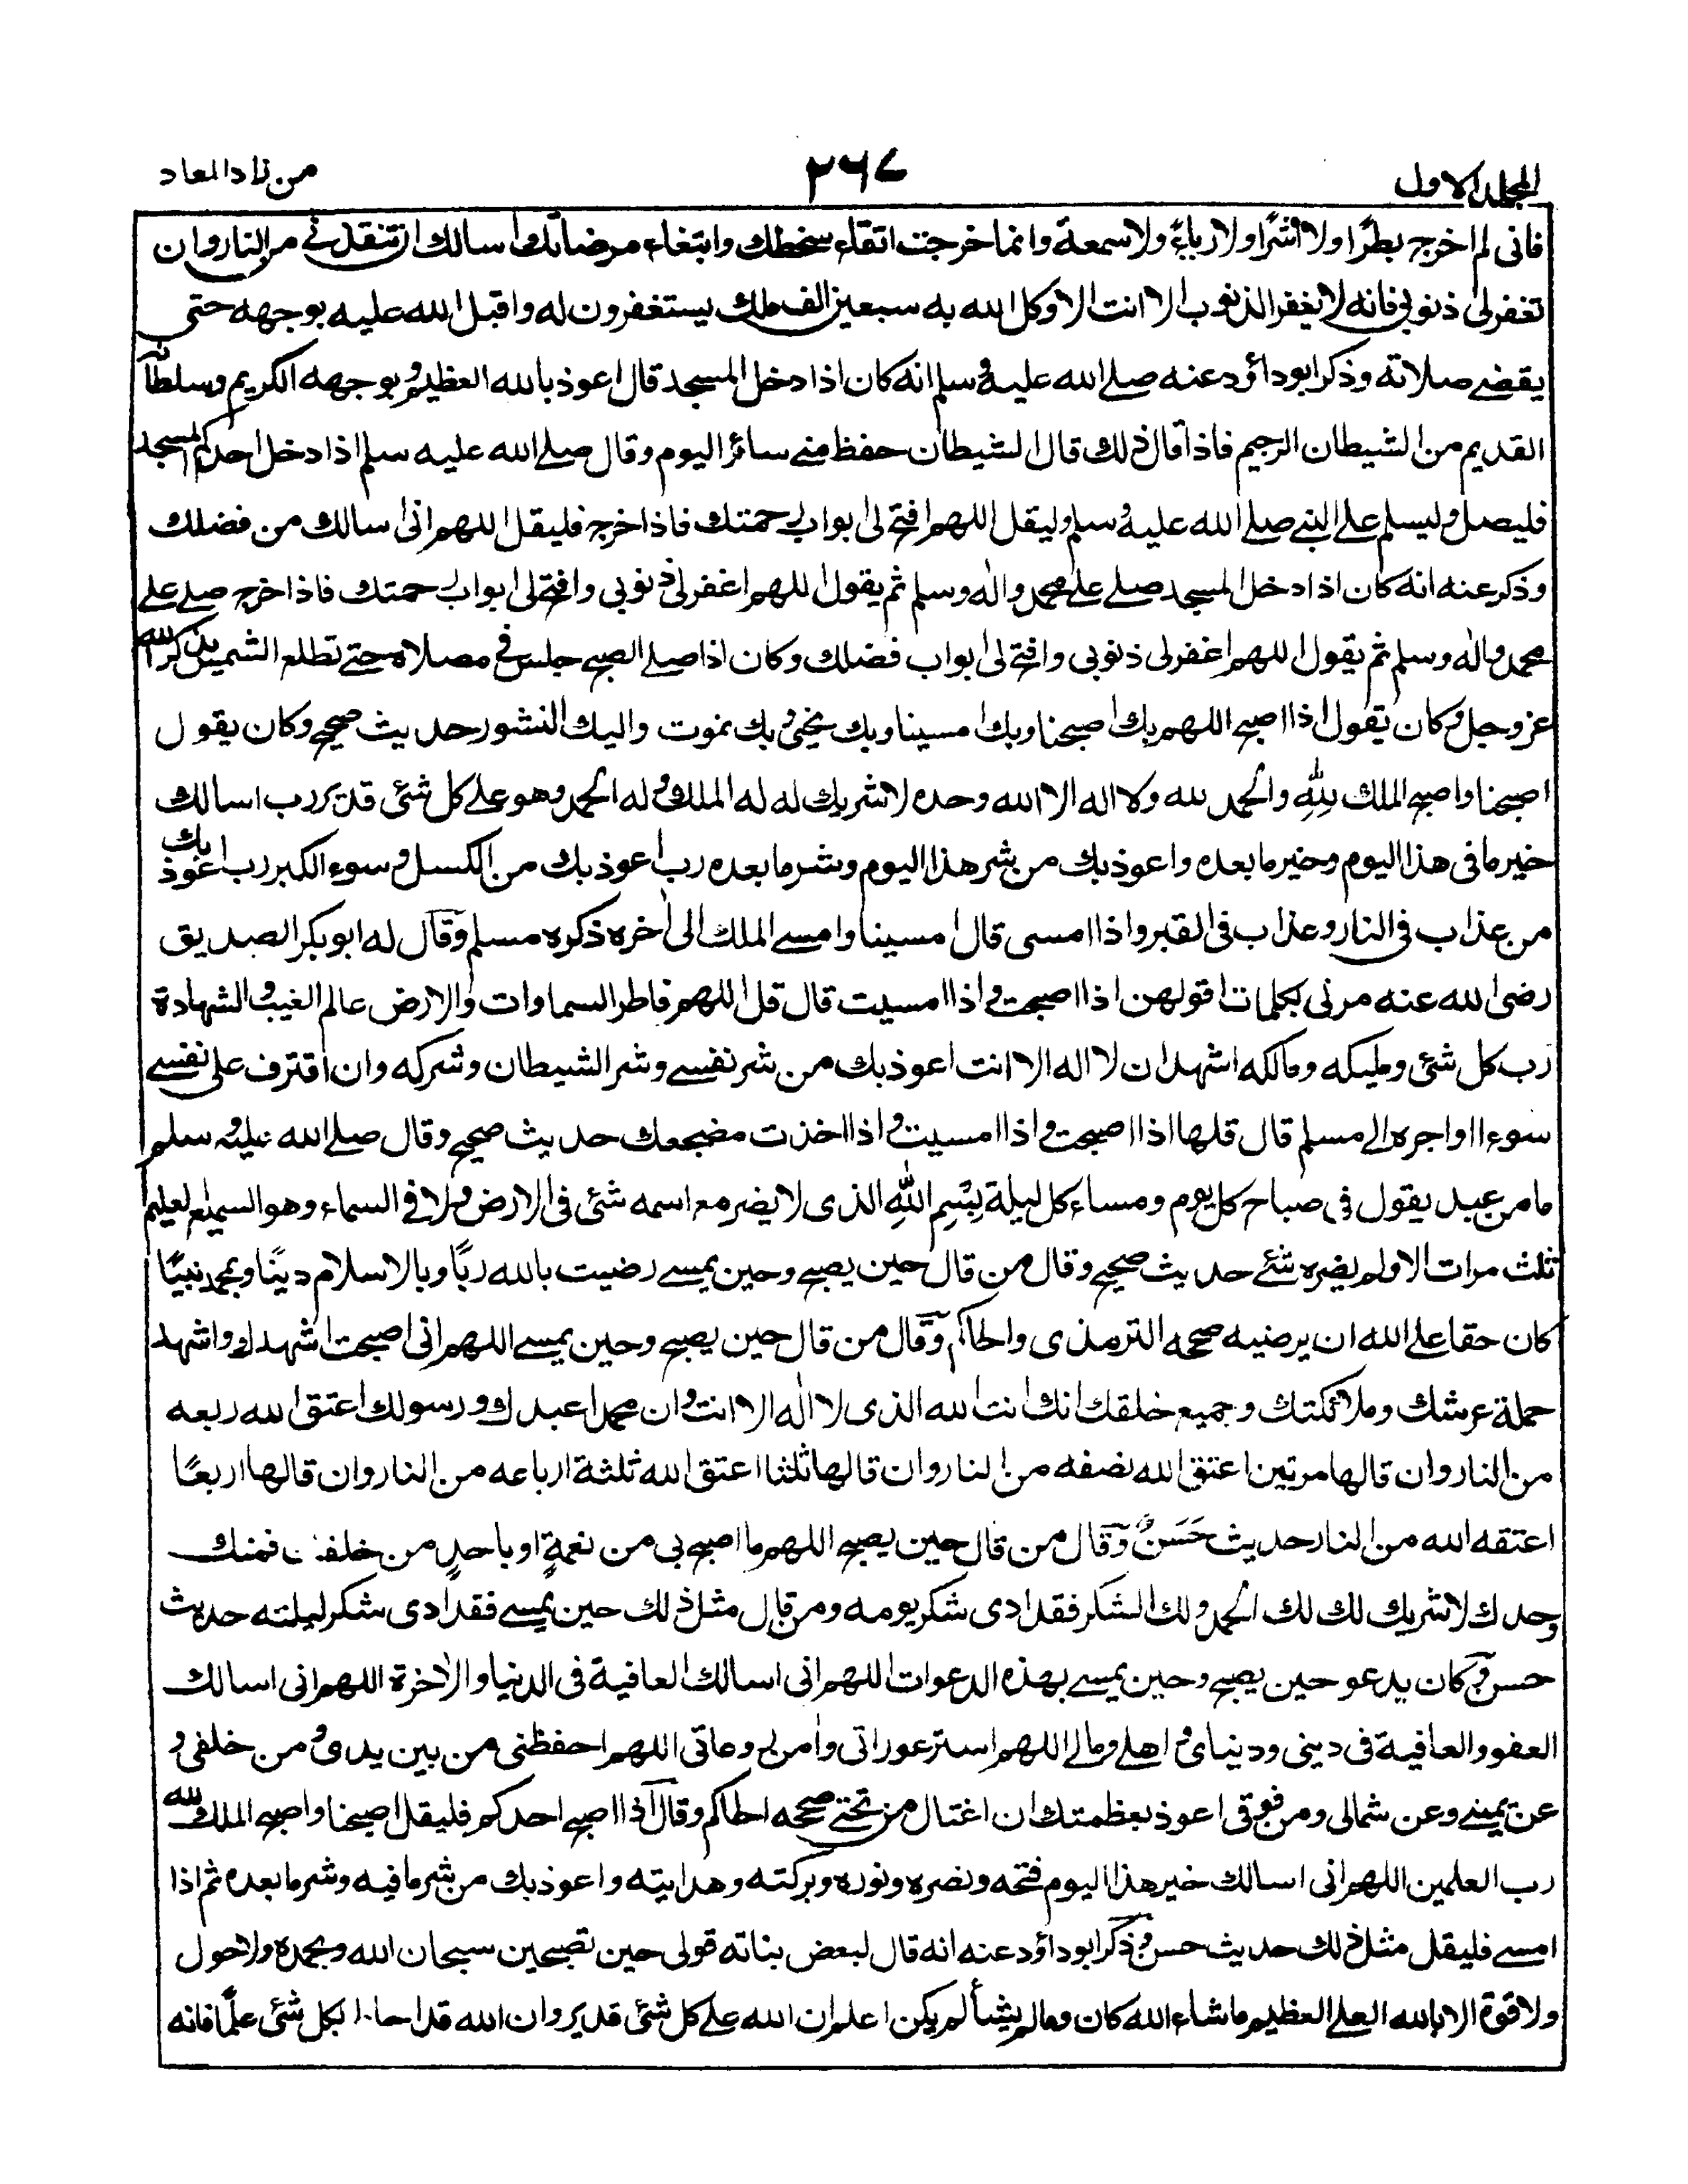 المجلد الاول
٢٦٧
من زاد المعاد
فانى لم اخرج بطرًا ولا اشرًا ولا رياءً ولا سمعة وانما خرجت اتقاء سخطك وابتغاء مرضاتك واسالك ان تنقذنى من النار وان
تغفرلى ذنوبى فانه لا يغفر الذنوب الا انت الا وكل الله به سبعين الف ملك يستغفرون له واقبل الله عليه بوجهه حتى
يقضے صلاته وذكر ابوداؤد عنه صلے الله عليه وسلم انه كان اذا دخل المسجد قال اعوذ بالله العظيم وبوجهه الكريم وسلطانه
القديم من الشيطان الرجيم فاذا قال ذلك قال الشيطان حفظ منے سائر اليوم وقال صلے الله عليه سلم اذا دخل احدكم المسجد
فليصل وليسلم علے النبے صلے الله عليه وسلم وليقل اللهم افتح لى ابواب رحمتك فاذا خرج فليقل اللهم انى اسالك من فضلك
وذكر عنه انه كان اذا دخل المسجد صلے علے محمد واله وسلم ثم يقول اللهم اغفرلى ذنوبى وافتح لى ابواب رحمتك فاذا خرج صلے علے
محمد واله وسلم ثم يقول اللهم اغفرلى ذنوبى وافتح لى ابواب فضلك وكان اذا صلے الصبح جلس فى مصلاه حتے تطلع الشمس يذكر الله
عز وجل وكان يقول اذا اصبح اللهم بك اصبحنا وبك امسينا وبك نحيى وبك نموت واليك النشور حديث صحيح وكان يقول
اصبحنا واصبح الملك لِلّٰهِ والحمد لله ولا اله الا الله وحده لا شريك له له الملك وله الحمد وهو علے كل شئ قدير رب اسالك
خير ما فى هذا اليوم وخير ما بعده واعوذ بك من شر هذا اليوم وشر ما بعده رب اعوذ بك من الكسل وسوء الكبر رب اعوذ بك
من عذاب فى النار وعذاب فى القبر واذا امسى قال امسينا وامسے الملك الى اخره ذكره مسلم وقال له ابوبكر الصديق
رضى الله عنه مرنى بكلمات اقولهن اذا اصبحت واذا امسيت قال قل اللهم فاطر السماوات والارض عالم الغيب والشهادة
رب كل شئ ومليكه ومالكه اشهد ان لا اله الا انت اعوذ بك من شر نفسے وشر الشيطان وشركه وان اقترف على نفسے
سوءا او اجره الے مسلم قال قلها اذا اصبحت واذا امسيت واذا اخذت مضجعك حديث صحيح وقال صلے الله عليه وسلم
ما من عبد يقول فى صباح كل يوم ومساء كل ليلة بِسْمِ اللّٰهِ الذى لا يضر مع اسمه شئ فى الارض ولا فى السماء وهو السميع العليم
ثلث مرات الا ولم يضره شئے حديث صحيح وقال من قال حين يصبح وحين يمسے رضيت بالله ربًا وبالاسلام دينًا وبمحمد نبيًا
كان حقا علے الله ان يرضيه صححه الترمذى والحاكم وقال من قال حين يصبح وحين يمسے اللهم انى اصبحت اشهدك واشهد
حملة عرشك وملائكتك وجميع خلقك انك انت الله الذى لا اله الا انت وان محمدا عبدك ورسولك اعتق الله ربعه
من النار وان قالها مرتين اعتق الله نصفه من النار وان قالها ثلثا اعتق الله ثلثة ارباعه من النار وان قالها اربعًا
اعتقه الله من النار حديث حَسَنٌ وقال من قال حين يصبح اللهم ما اصبح بى من نعمةٍ او باحدٍ من خلقك فمنك
وحدك لا شريك لك لك الحمد ولك الشكر فقد ادى شكر يومه ومن قال مثل ذلك حين يمسے فقد ادى شكر ليلته حديث
حسن وكان يدعو حين يصبح وحين يمسے بهذه الدعوات اللهم انى اسالك العافية فى الدنيا والاخرة اللهم انى اسالك
العفو والعافية فى دينى ودنياى واهلے ومالے اللهم استر عوراتى وامن روعاتى اللهم احفظنى من بين يدى ومن خلفى و
عن يمينے وعن شمالى ومن فوقى اعوذ بعظمتك ان اغتال من تحتے صححه الحاكم وقال اذا اصبح احدكم فليقل اصبحنا واصبح الملك لله
رب العلمين اللهم انى اسالك خير هذا اليوم فتحه ونصره ونوره وبركته وهدايته واعوذ بك من شر ما فيه وشر ما بعده ثم اذا
امسے فليقل مثل ذلك حديث حسن وذكر ابوداؤد عنه انه قال لبعض بناته قولى حين تصبحين سبحان الله وبحمده ولا حول
ولا قوة الا بالله العلے العظيم ما شاء الله كان ومالم يشأ لم يكن اعلم ان الله علے كل شئ قدير وان الله قد احاط بكل شئ علمًا فانه